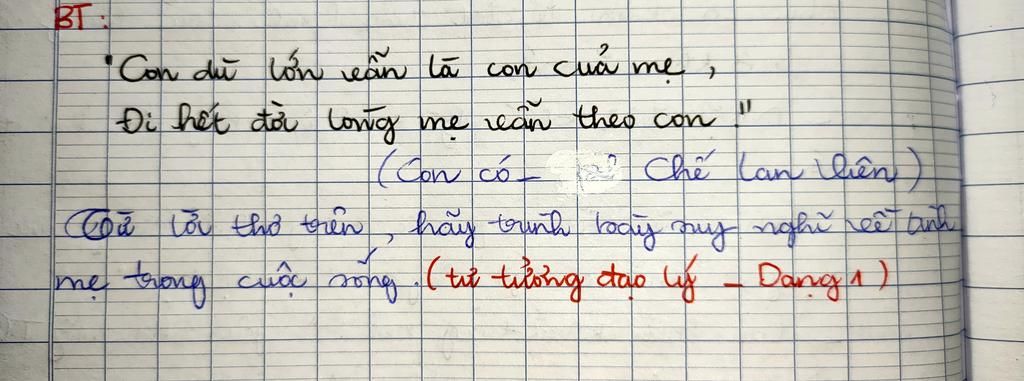 BT:
"Con dù lớn vẫn là con của mẹ,
Đi hết đời lòng mẹ vẫn theo con."
(Con cò - Chế Lan Viên)
Từ lời thơ trên, hãy trình bày suy nghĩ về tình
mẹ trong cuộc sống. (tư tưởng đạo lý - Dạng 1)